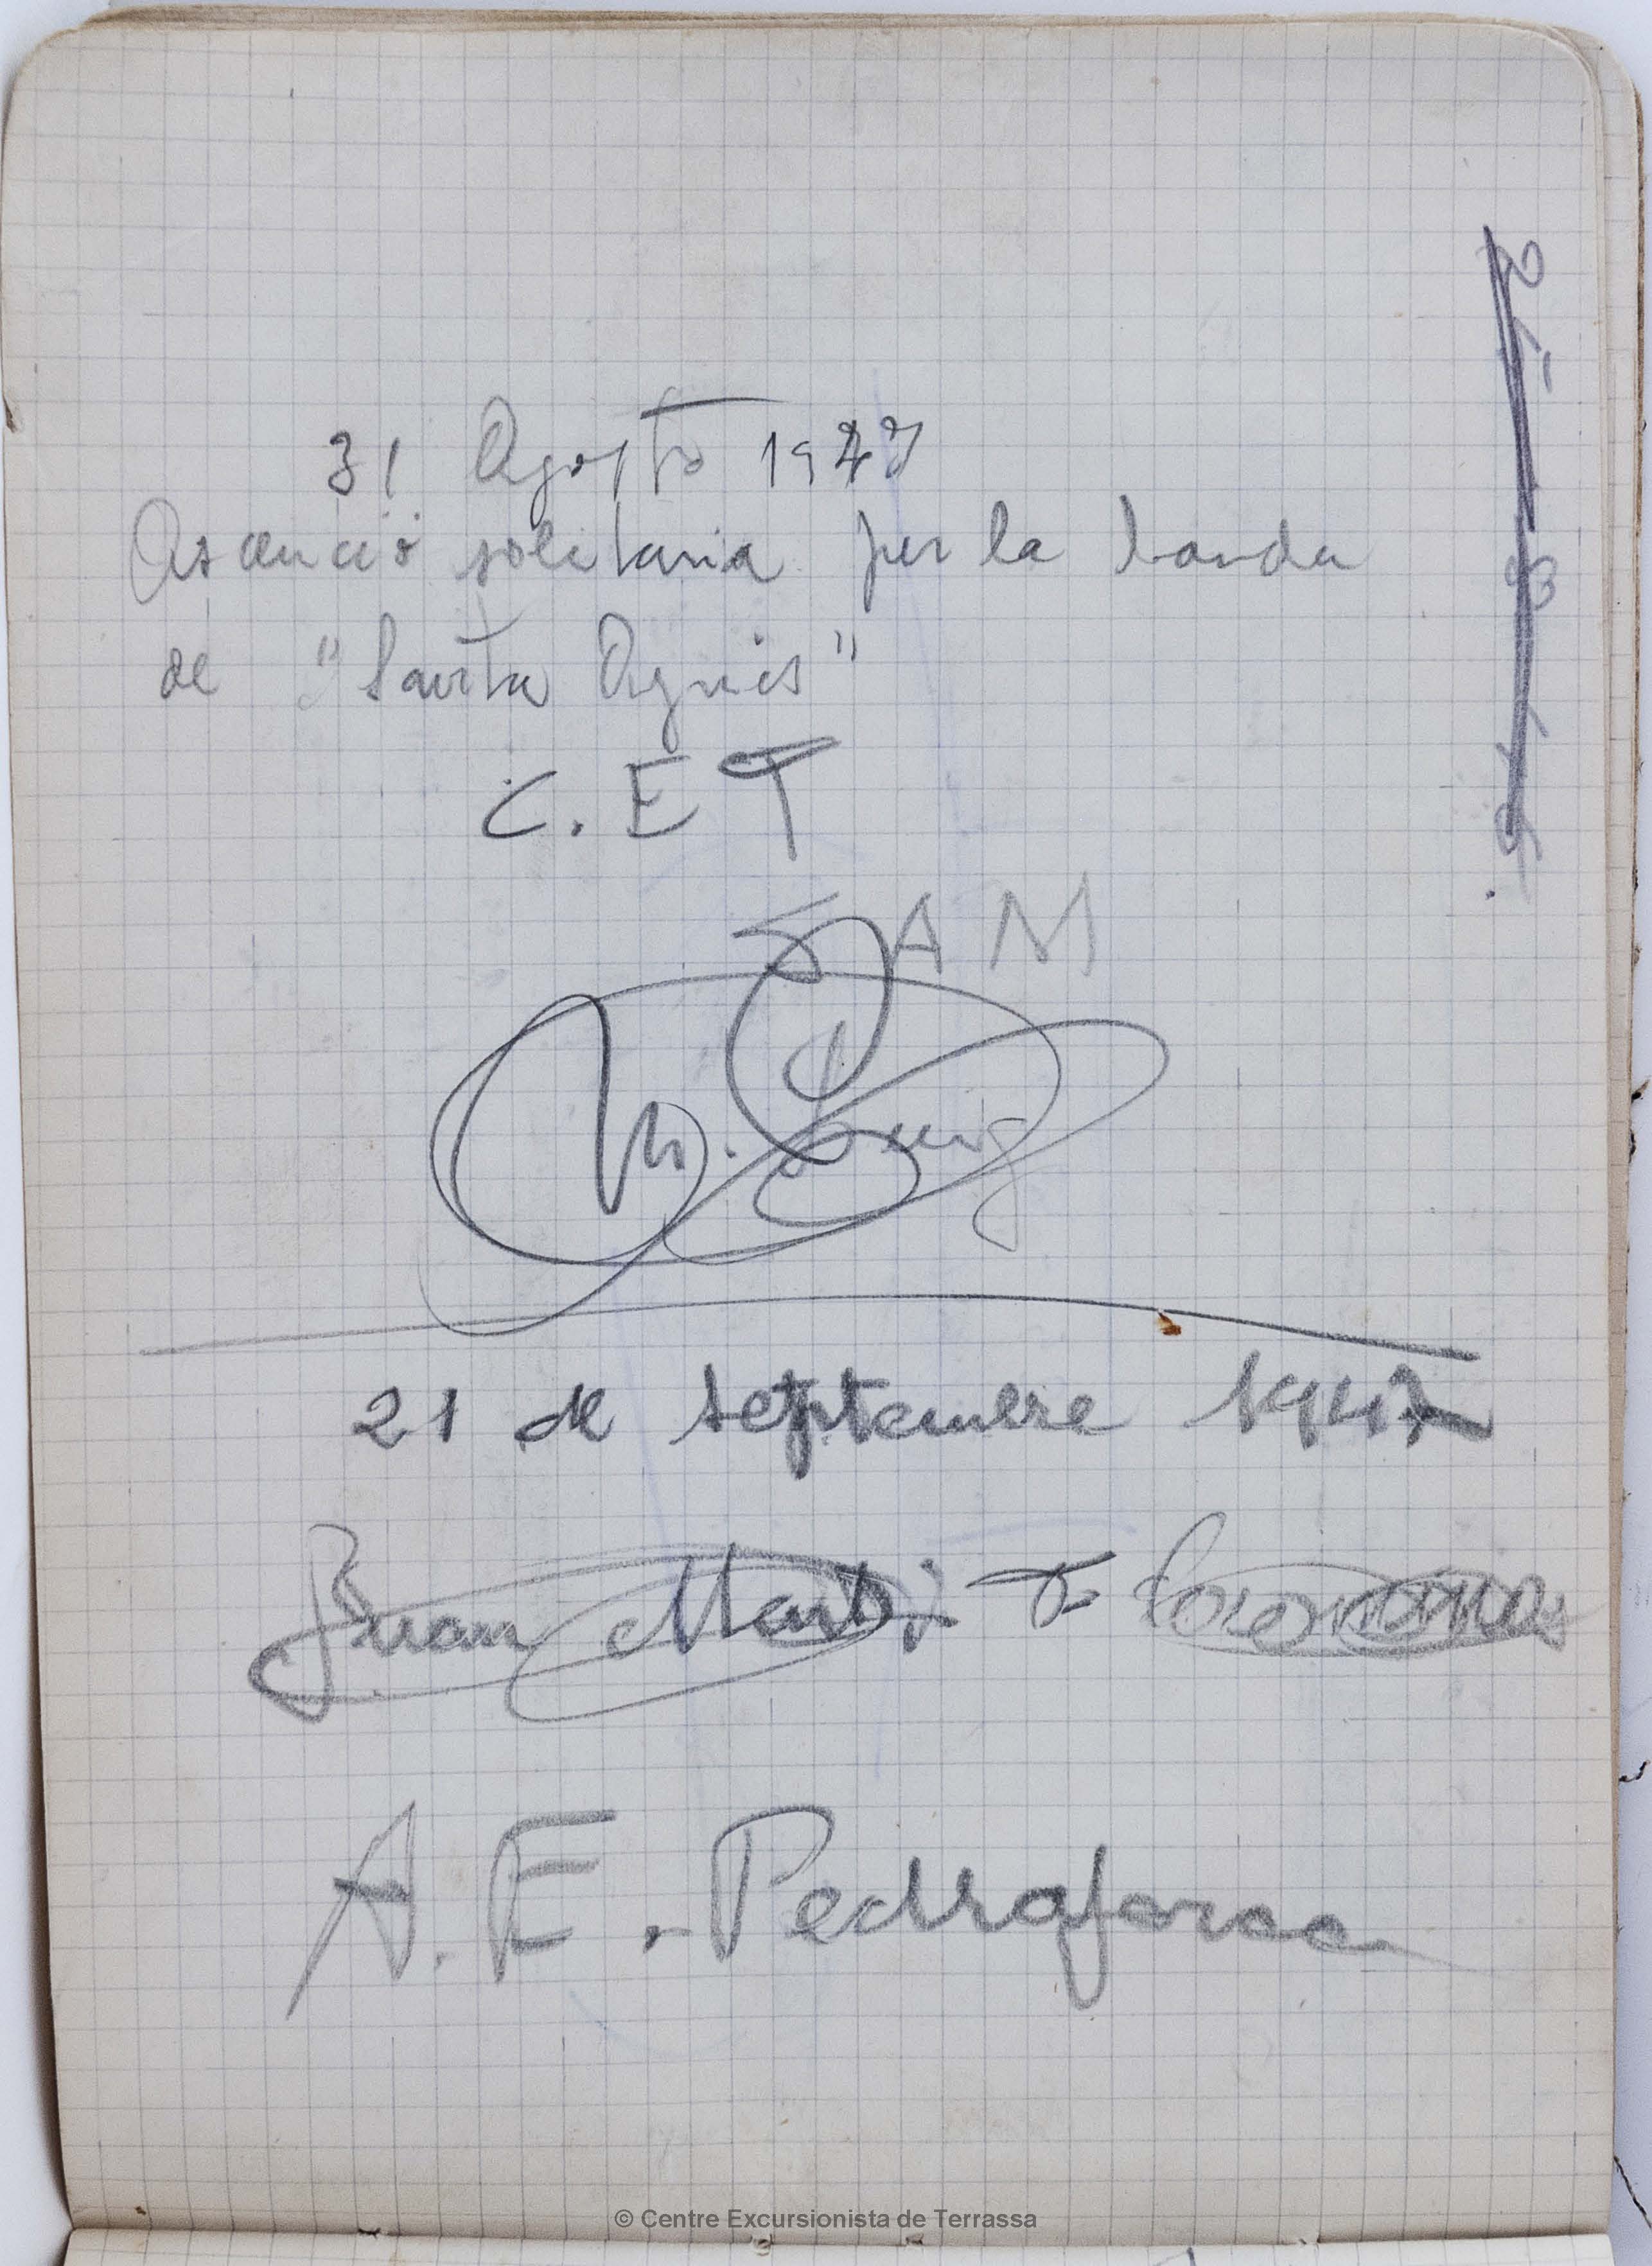 31 Agosto 1947
Ascenció solitaria per la banda
de "Santa Agnès"
C.E T
SAM
M. Puig
21 de septembre 1947
Juan Martí
A. E. Pedraforca
© Centre Excursionista de Terrassa